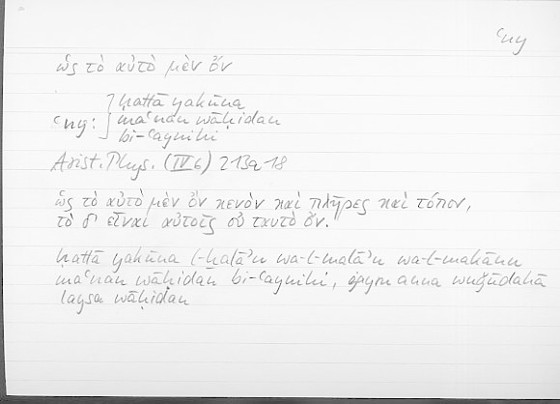 ʿny
ὡς τὸ αὐτὸ μὲν ὄν
ḥattā yakūna
ʿny: maʿnan wāḥidan
bi-ʿaynihi
Arist. Phys. (IV 6) 213a18
ὡς τὸ αὐτὸ μὲν ὂν κενὸν καὶ πλῆρες καὶ τόπον,
τὸ δ' εἶναι αὐτοῖς οὐ ταὐτὸ ὄν.
ḥattā yakūna l-ḫalāʾu wa-l-malāʾu wa-l-makānu
maʿnan wāḥidan bi-ʿaynihi, anna wuǧūdahā
laysa wāḥidan